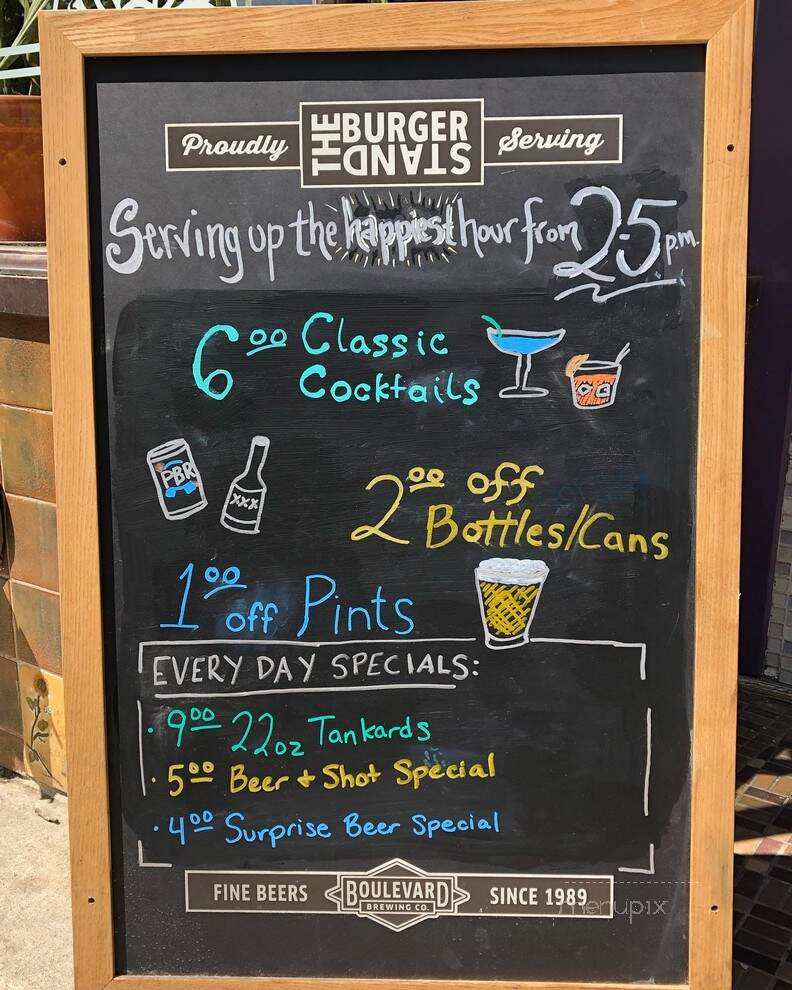 Proudly THE BURGER STAND Serving
Serving up the happiest hour from 2-5 p.m.
6 00 Classic
Cocktails
PBR
XXX
2 00 off
Bottles/Cans
1 00 off Pints
EVERY DAY SPECIALS:
· 9 00 22oz Tankards
· 5 00 Beer + Shot Special
· 4 00 Surprise Beer Special
FINE BEERS BOULEVARD BREWING CO. SINCE 1989
menupix